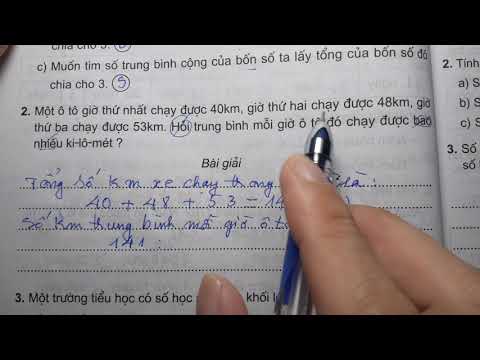 chia cho 3. S
c) Muốn tìm số trung bình cộng của bốn số ta lấy tổng của bốn số đó
chia cho 3. S
2. Một ô tô giờ thứ nhất chạy được 40km, giờ thứ hai chạy được 48km, giờ
thứ ba chạy được 53km. Hỏi trung bình mỗi giờ ô tô đó chạy được bao
nhiêu ki-lô-mét ?
Bài giải
Tổng số km xe chạy trong là :
40 + 48 + 53 = 14
Số km trung bình mỗi giờ ô tô
141 :
3. Một trường tiểu học có số học khối
2. Tính
a) S
b) S
c) S
3. Số
số